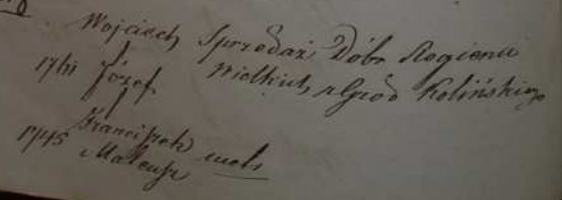 Wojciech Sprzedaż Dóbr Rogienu
Józef Wielkich, z Gród Kolińskiego
Franciszek
1745 Mateusz